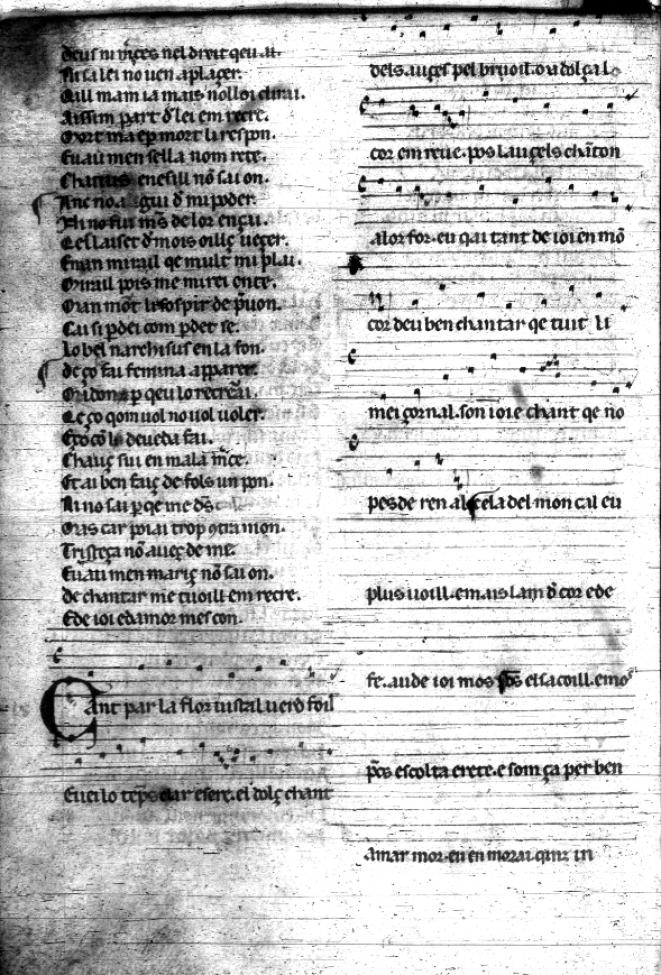 deus ni merces nel dreit qeu ai.
ni sa lei no uen a plaçer.
Qill mam ia mais nolloi dirai.
Aissim part d lei em recre.
Mort ma e p mort li respon.
Euau men sella nom rete.
Chaitius en esill nõ sai on.
Anc no a gui d mi poder.
Ni no fui mes de lor en çai.
Qe laiset d mois oillç ueçer.
En un mirail qe mult mi plai.
Mirail pois me mirei en te.
Man mõt li sospir de pron.
Cai si pdei com pdet se.
lo bel narchisus en la fon.
de ço fai femina apparer.
Ma dona p qeu lo recreai.
Qe ço qom uol no uol uoler.
E ço cõ li deueda fai.
Chauç sui en mala mce.
Et ai ben faiç de fols un pon.
Ni no sai p qe me des
Mas car poiai trop contra mon.
Tristeça nõ aueç de me.
Euau men mariç nõ sai on.
De chantar me tuoill em recre.
E de ioi e damor mescon.
Cant par la flor iustal uerd foil
E uei lo teps clar e sere. el dolç chant
dels auçels pel bruoil. ou dolçal
cor em reue. pos lauçels chãton
a lor for. eu qai tant de ioi en mõ
cor deu ben chantar qe tuit li
mei çornal. son ioi e chant qe no
pes de ren al. cela del mon cal eu
plus uoill. e mais lam d cor e de
fe. au de ioi mos els acoill. e mos
pcs escolta e rete. e som ça per ben
amar mor. eu en morai qinz in